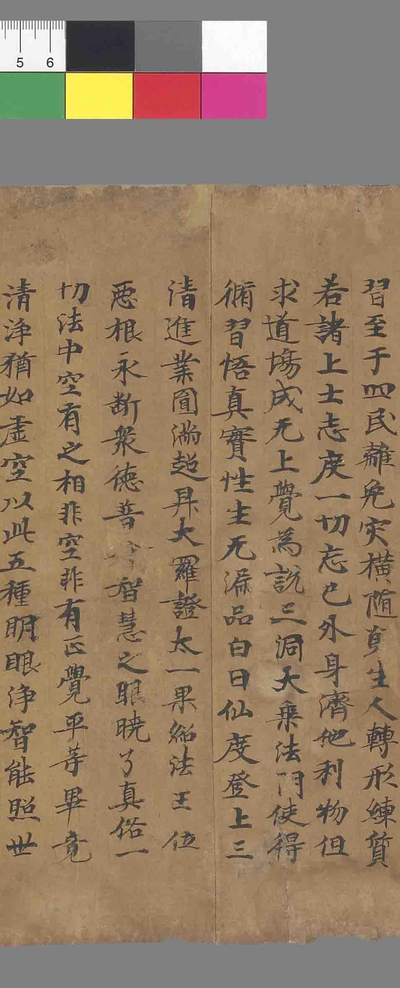 5 6
習至于四民離免灾横随身生人轉形練質
若諸上士志度一切忘己外身濟他利物但
求道場成无上覺為說三洞大乘法門使得
脩習悟真實性生无漏品白日仙度登上三
清進業圓滿超昇大羅證太一果紹法王位
惡根永断衆德普智慧之眼曉了真俗一
切法中空有之相非空非有正覺平等畢竟
清浄猶如虛空以此五種明眼浄智能照世